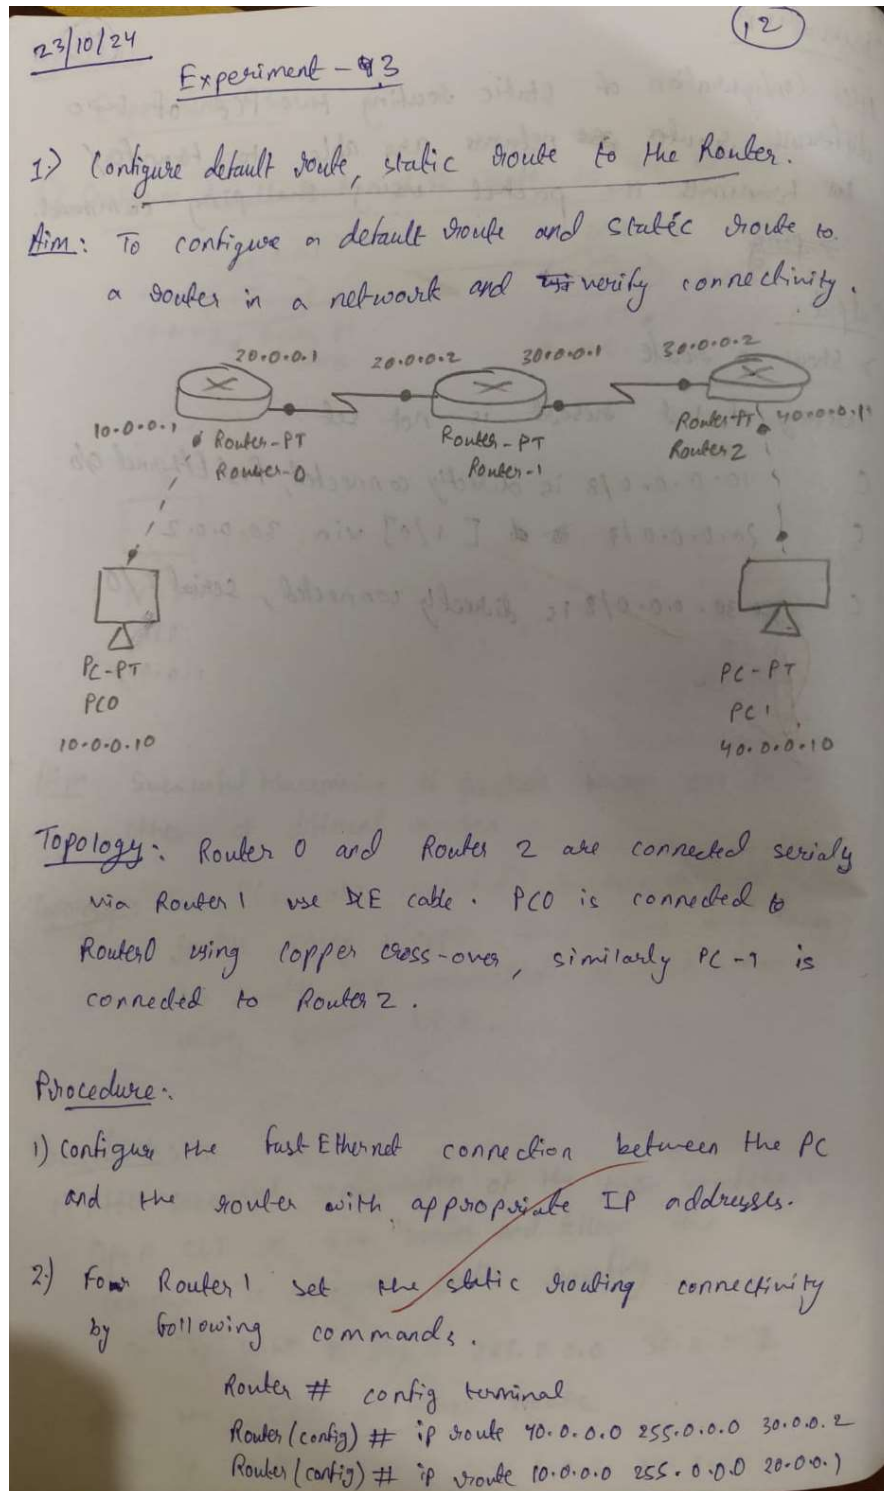 23/10/24
12
Experiment - 3
1) Configure default route, static route to the Router.
Aim: To configure a default route and static route to
a router in a network and verify connectivity.
20.0.0.1 20.0.0.2 30.0.0.1 30.0.0.2
10.0.0.1 Router-PT Router-PT Router-PT 40.0.0.1
Router-0 Router-1 Router 2
PC-PT PC-PT
PC0 PC1
10.0.0.10 40.0.0.10
Topology: Router 0 and Router 2 are connected serialy
via Router 1 use DCE cable. PC0 is connected to
Router0 using Copper cross-over, similarly PC-1 is
connected to Router 2.
Procedure:
1) Configure the fast Ethernet connection between the PC
and the router with appropriate IP addresses.
2) For Router 1 set the static routing connectivity
by following commands.
Router # config terminal
Router (config) # ip route 40.0.0.0 255.0.0.0 30.0.0.2
Router (config) # ip route 10.0.0.0 255.0.0.0 20.0.0.1